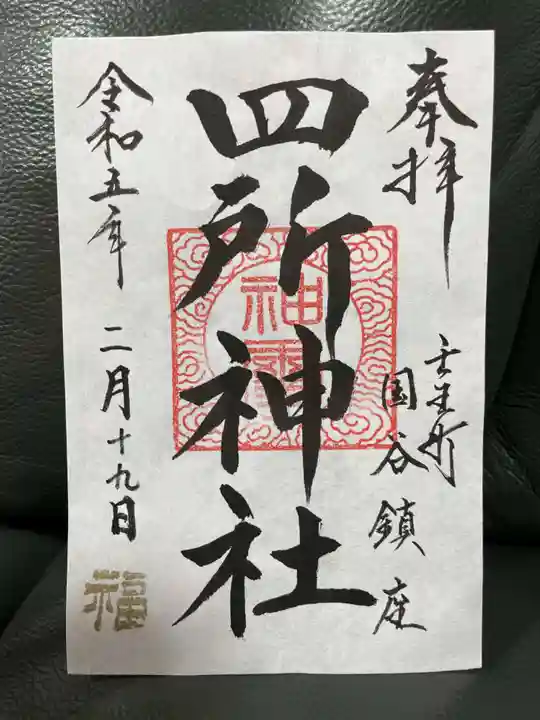 奉拝
壬生町
国谷鎮座
四所神社
神璽
令和五年
二月十九日
福